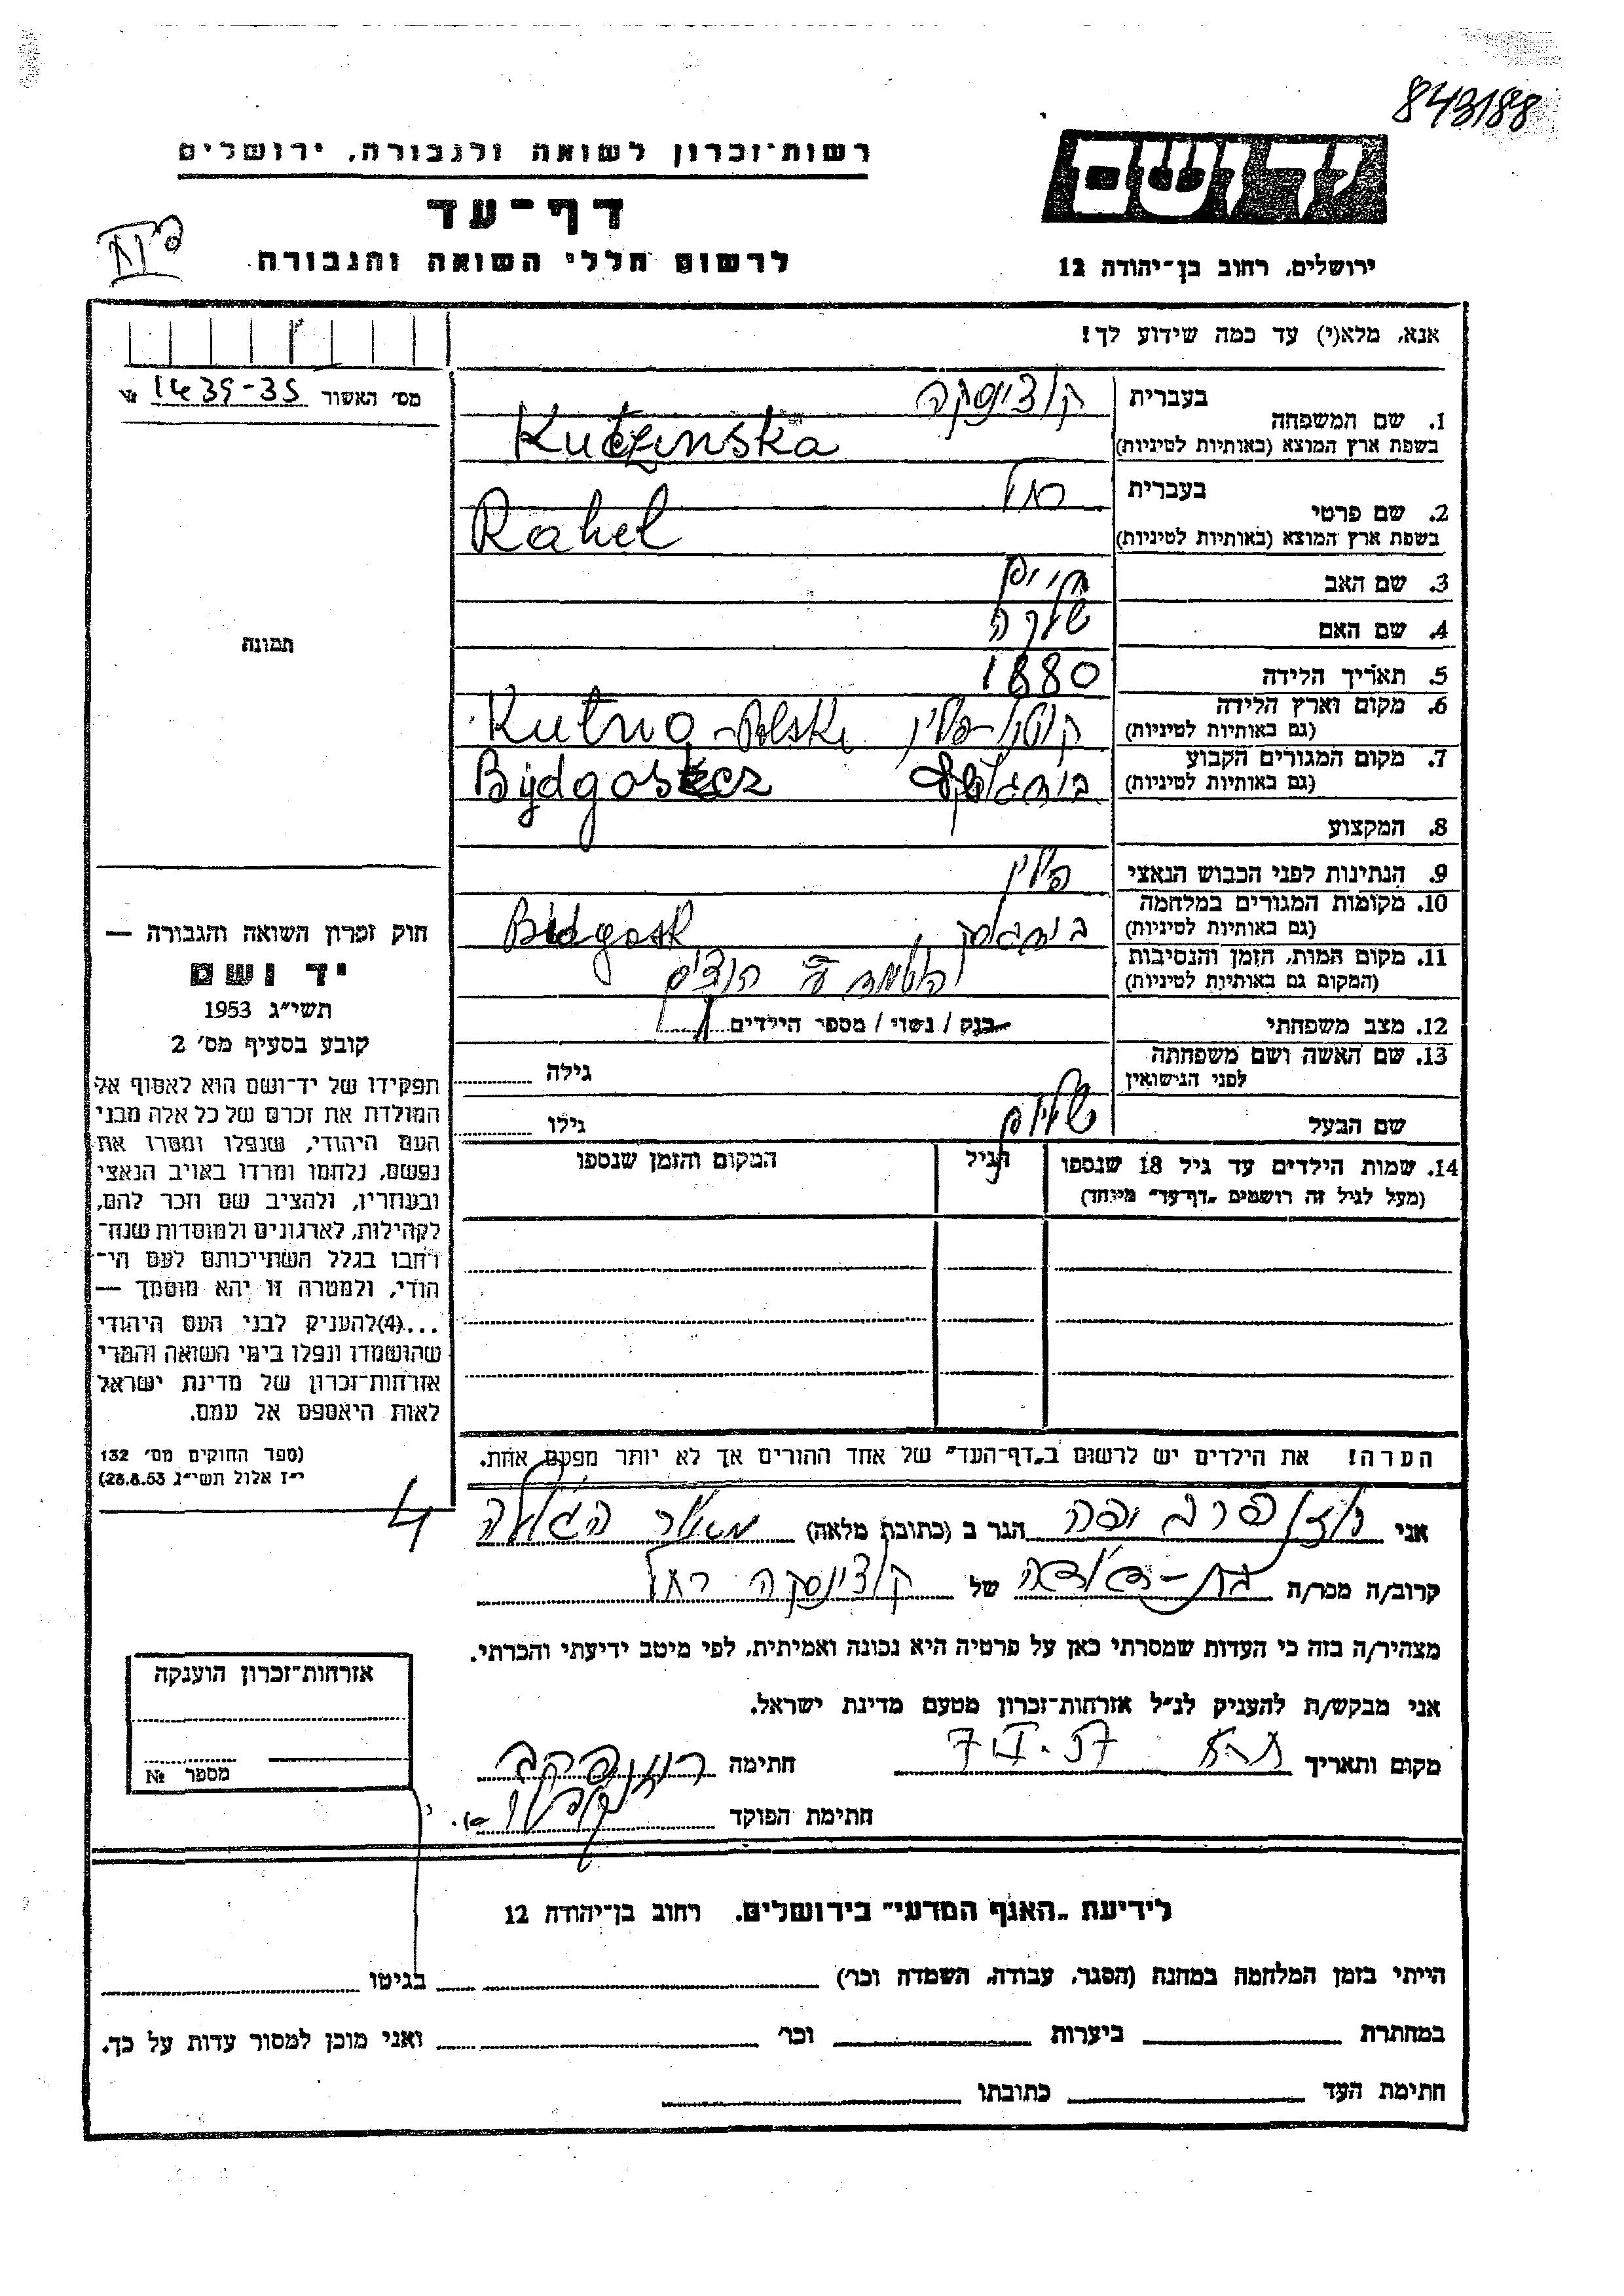 843188
רשות־זכרון לשואה ולגבורה, ירושלים
יד ושם
דף־עד
לרשום חללי השואה והגבורה
ירושלים, רחוב בן־יהודה 12
אנא, מלא(י) עד כמה שידוע לך!
מס׳ האשור 1439-35 №
1. שם המשפחה
בעברית קוצ׳ינסקה
בשפת ארץ המוצא (באותיות לטיניות) Kutzinska
2. שם פרטי
בעברית רחל
בשפת ארץ המוצא (באותיות לטיניות) Rahel
3. שם האב חיים
4. שם האם
5. תאריך הלידה 1880
6. מקום וארץ הלידה
(גם באותיות לטיניות) קוטנו-פולין Kutno-Polski
7. מקום המגורים הקבוע
(גם באותיות לטיניות) Bydgoszcz
8. המקצוע
9. הנתינות לפני הכבוש הנאצי פולין
10. מקומות המגורים במלחמה
(גם באותיות לטיניות) Bidgosk
11. מקום המות, הזמן והנסיבות
(המקום גם באותיות לטיניות)
12. מצב משפחתי רנק / נשוי / מספר הילדים
13. שם האשה ושם משפחתה
לפני הנישואין גילה
שם הבעל גילו
14. שמות הילדים עד גיל 18 שנספו
(מעל לגיל זה רושמים „דף־עד״ מיוחד)
הגיל
המקום והזמן שנספו
תמונה
חוק זכרון השואה והגבורה —
יד ושם
תשי״ג 1953
קובע בסעיף מס׳ 2
תפקידו של יד־ושם הוא לאסוף אל
המולדת את זכרם של כל אלה מבני
העם היהודי, שנפלו ומסרו את
נפשם, נלחמו ומרדו באויב הנאצי
ובעוזריו, ולהציב שם וזכר להם,
לקהילות, לארגונים ולמוסדות שנח־
רבו בגלל השתייכותם לעם הי־
הודי, ולמטרה זו יהא מוסמך —
...(4)להעניק לבני העם היהודי
שהושמדו ונפלו בימי השואה והמרי
אזרחות־זכרון של מדינת ישראל
לאות היאספם אל עמם.
(ספר החוקים מס׳ 132
י״ז אלול תשי״ג 28.8.53)
הערה! את הילדים יש לרשום ב„דף־העד״ של אחד ההורים אך לא יותר מפעם אחת.
אני רוזנפרב יפה הגר ב (כתובת מלאה)
קרוב/ה מכר/ה בת-דודה של קוצינסקה רחל
מצהיר/ה בזה כי העדות שמסרתי כאן על פרטיה היא נכונה ואמיתית, לפי מיטב ידיעתי והכרתי.
אני מבקש/ת להעניק לנ״ל אזרחות־זכרון מטעם מדינת ישראל.
מקום ותאריך חתימה
חתימת הפוקד
אזרחות־זכרון הוענקה
מספר №
לידיעת „האגף המדעי״ בירושלים. רחוב בן־יהודה 12
הייתי בזמן המלחמה במחנה (הסגר, עבודה, השמדה וכר׳) בגיטו
במחתרת ביערות וכר׳ ואני מוכן למסור עדות על כך.
חתימת העד כתובתו